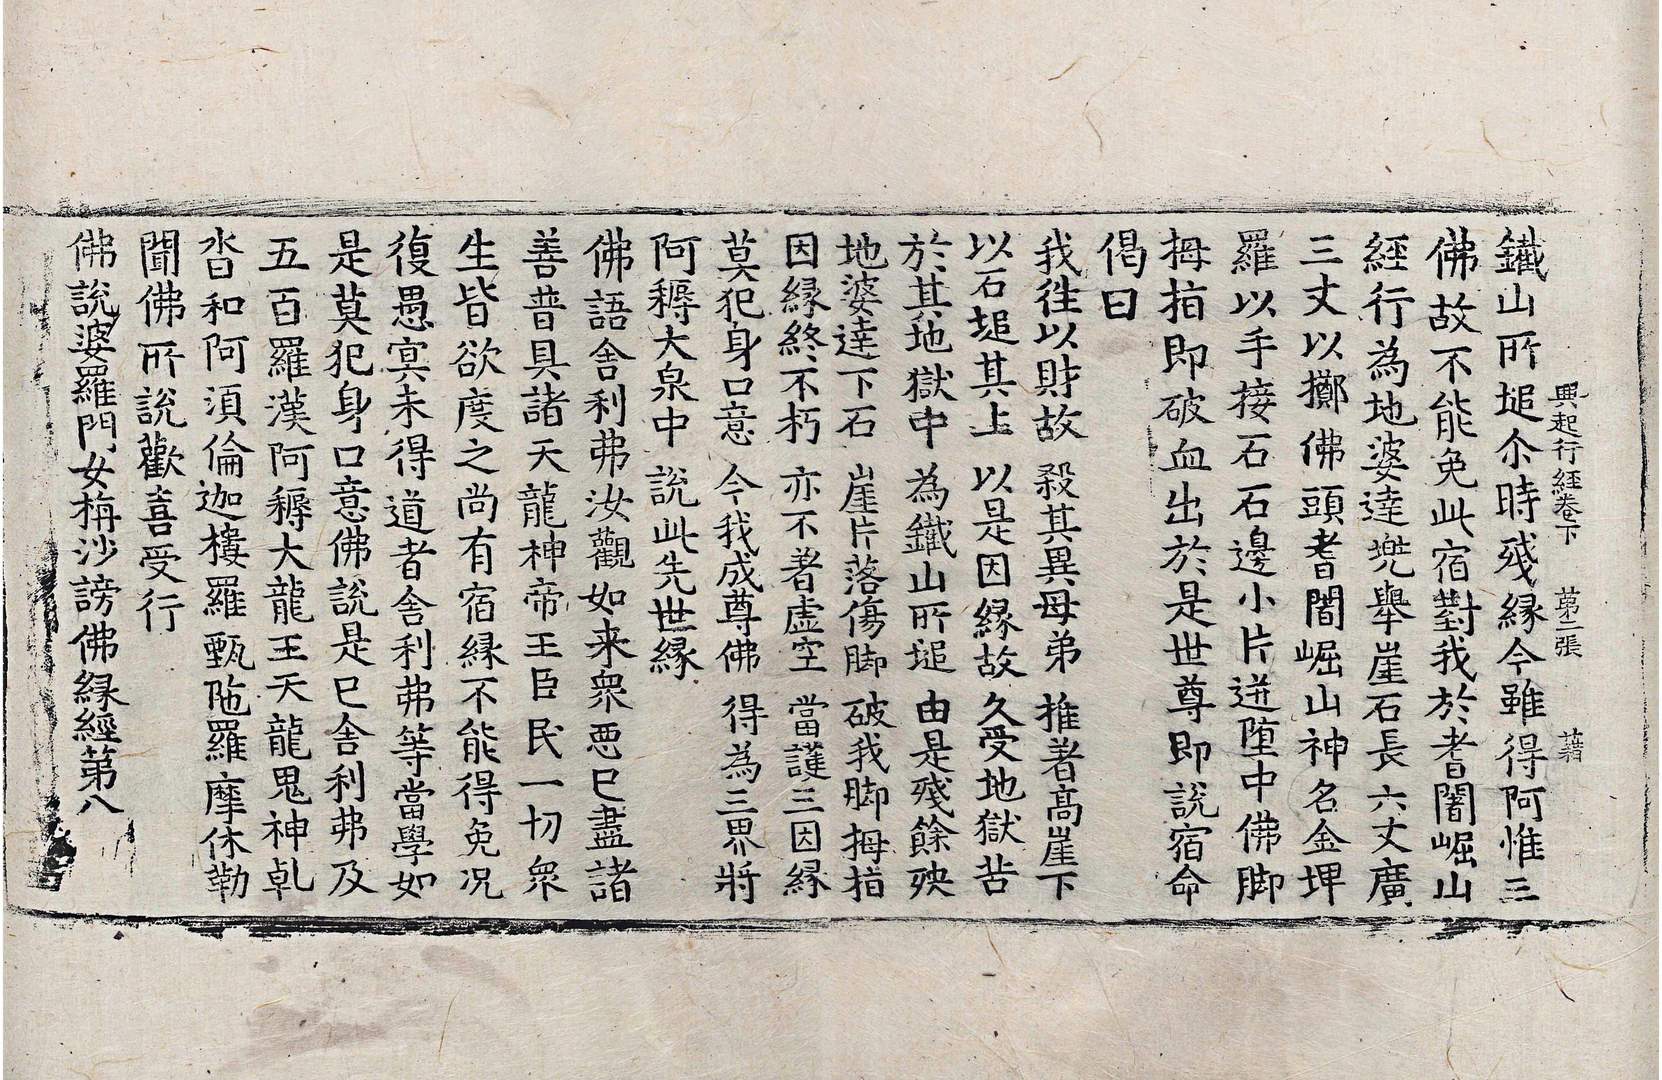 興起行經卷下 第二張 藉
鐵山所塠尒時殘緣今雖得阿惟三
佛故不能免此宿對我於耆闍崛山
經行為地婆達兠舉崖石長六丈廣
三丈以擲佛頭耆闍崛山神名金埤
羅以手接石石邊小片迸堕中佛脚
拇指即破血出於是世尊即說宿命
偈曰
我徃以財故 殺其異母弟 推著高崖下
以石塠其上 以是因緣故 久受地獄苦
於其地獄中 為鐵山所塠 由是殘餘殃
地婆達下石 崖片落傷脚 破我脚拇指
因緣終不朽 亦不著虛空 當護三因緣
莫犯身口意 今我成尊佛 得為三界將
阿耨大泉中 說此先世緣
佛語舍利弗汝觀如来衆惡已盡諸
善普具諸天龍神帝王臣民一切衆
生皆欲度之尚有宿緣不能得免况
復愚冥未得道者舍利弗等當學如
是莫犯身口意佛說是已舍利弗及
五百羅漢阿耨大龍王天龍鬼神乹
沓和阿湏倫迦樓羅甄陁羅摩休勒
聞佛所說歡喜受行
佛說婆羅門女栴沙謗佛緣經第八